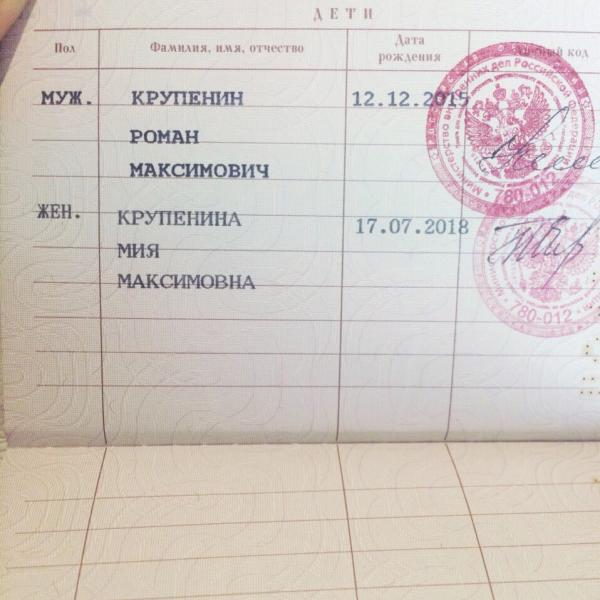 ДЕТИ
Пол Фамилия, имя, отчество Дата рождения Личный код
МУЖ. КРУПЕНИН 12.12.2015
РОМАН
МАКСИМОВИЧ
Министерство внутренних дел Российской Федерации
780-012
ЖЕН. КРУПЕНИНА 17.07.2018
МИЯ
МАКСИМОВНА
780-012